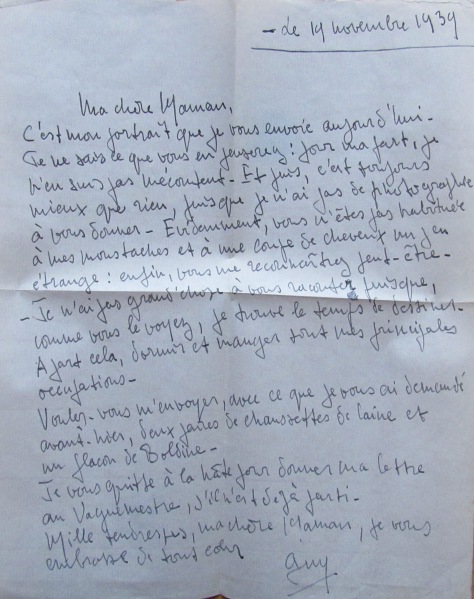 - le 19 novembre 1939
Ma chère Maman,
C'est mon portrait que je vous envoie aujourd'hui -
Je ne sais ce que vous en penserez : pour ma part, je
n'en suis pas mécontent - Et puis, c'est toujours
mieux que rien, puisque je n'ai pas de photographie
à vous donner - Evidemment, vous n'êtes pas habituée
à mes moustaches et à une coupe de cheveux un peu
étrange : enfin, vous me reconnaîtrez peut-être -
- Je n'ai pas grand'chose à vous raconter puisque,
comme vous le voyez, je trouve le temps de dessiner.
A part cela, dormir et manger sont mes principales
occupations -
Voulez-vous m'envoyer, avec ce que je vous ai demandé
avant-hier, deux paires de chaussettes de laine et
un flacon de Boldine -
Je vous quitte à la hâte pour donner ma lettre
au Vaguemestre, s'il n'est déjà parti -
Mille tendresses, ma chère Maman, je vous
embrasse de tout cœur
Guy